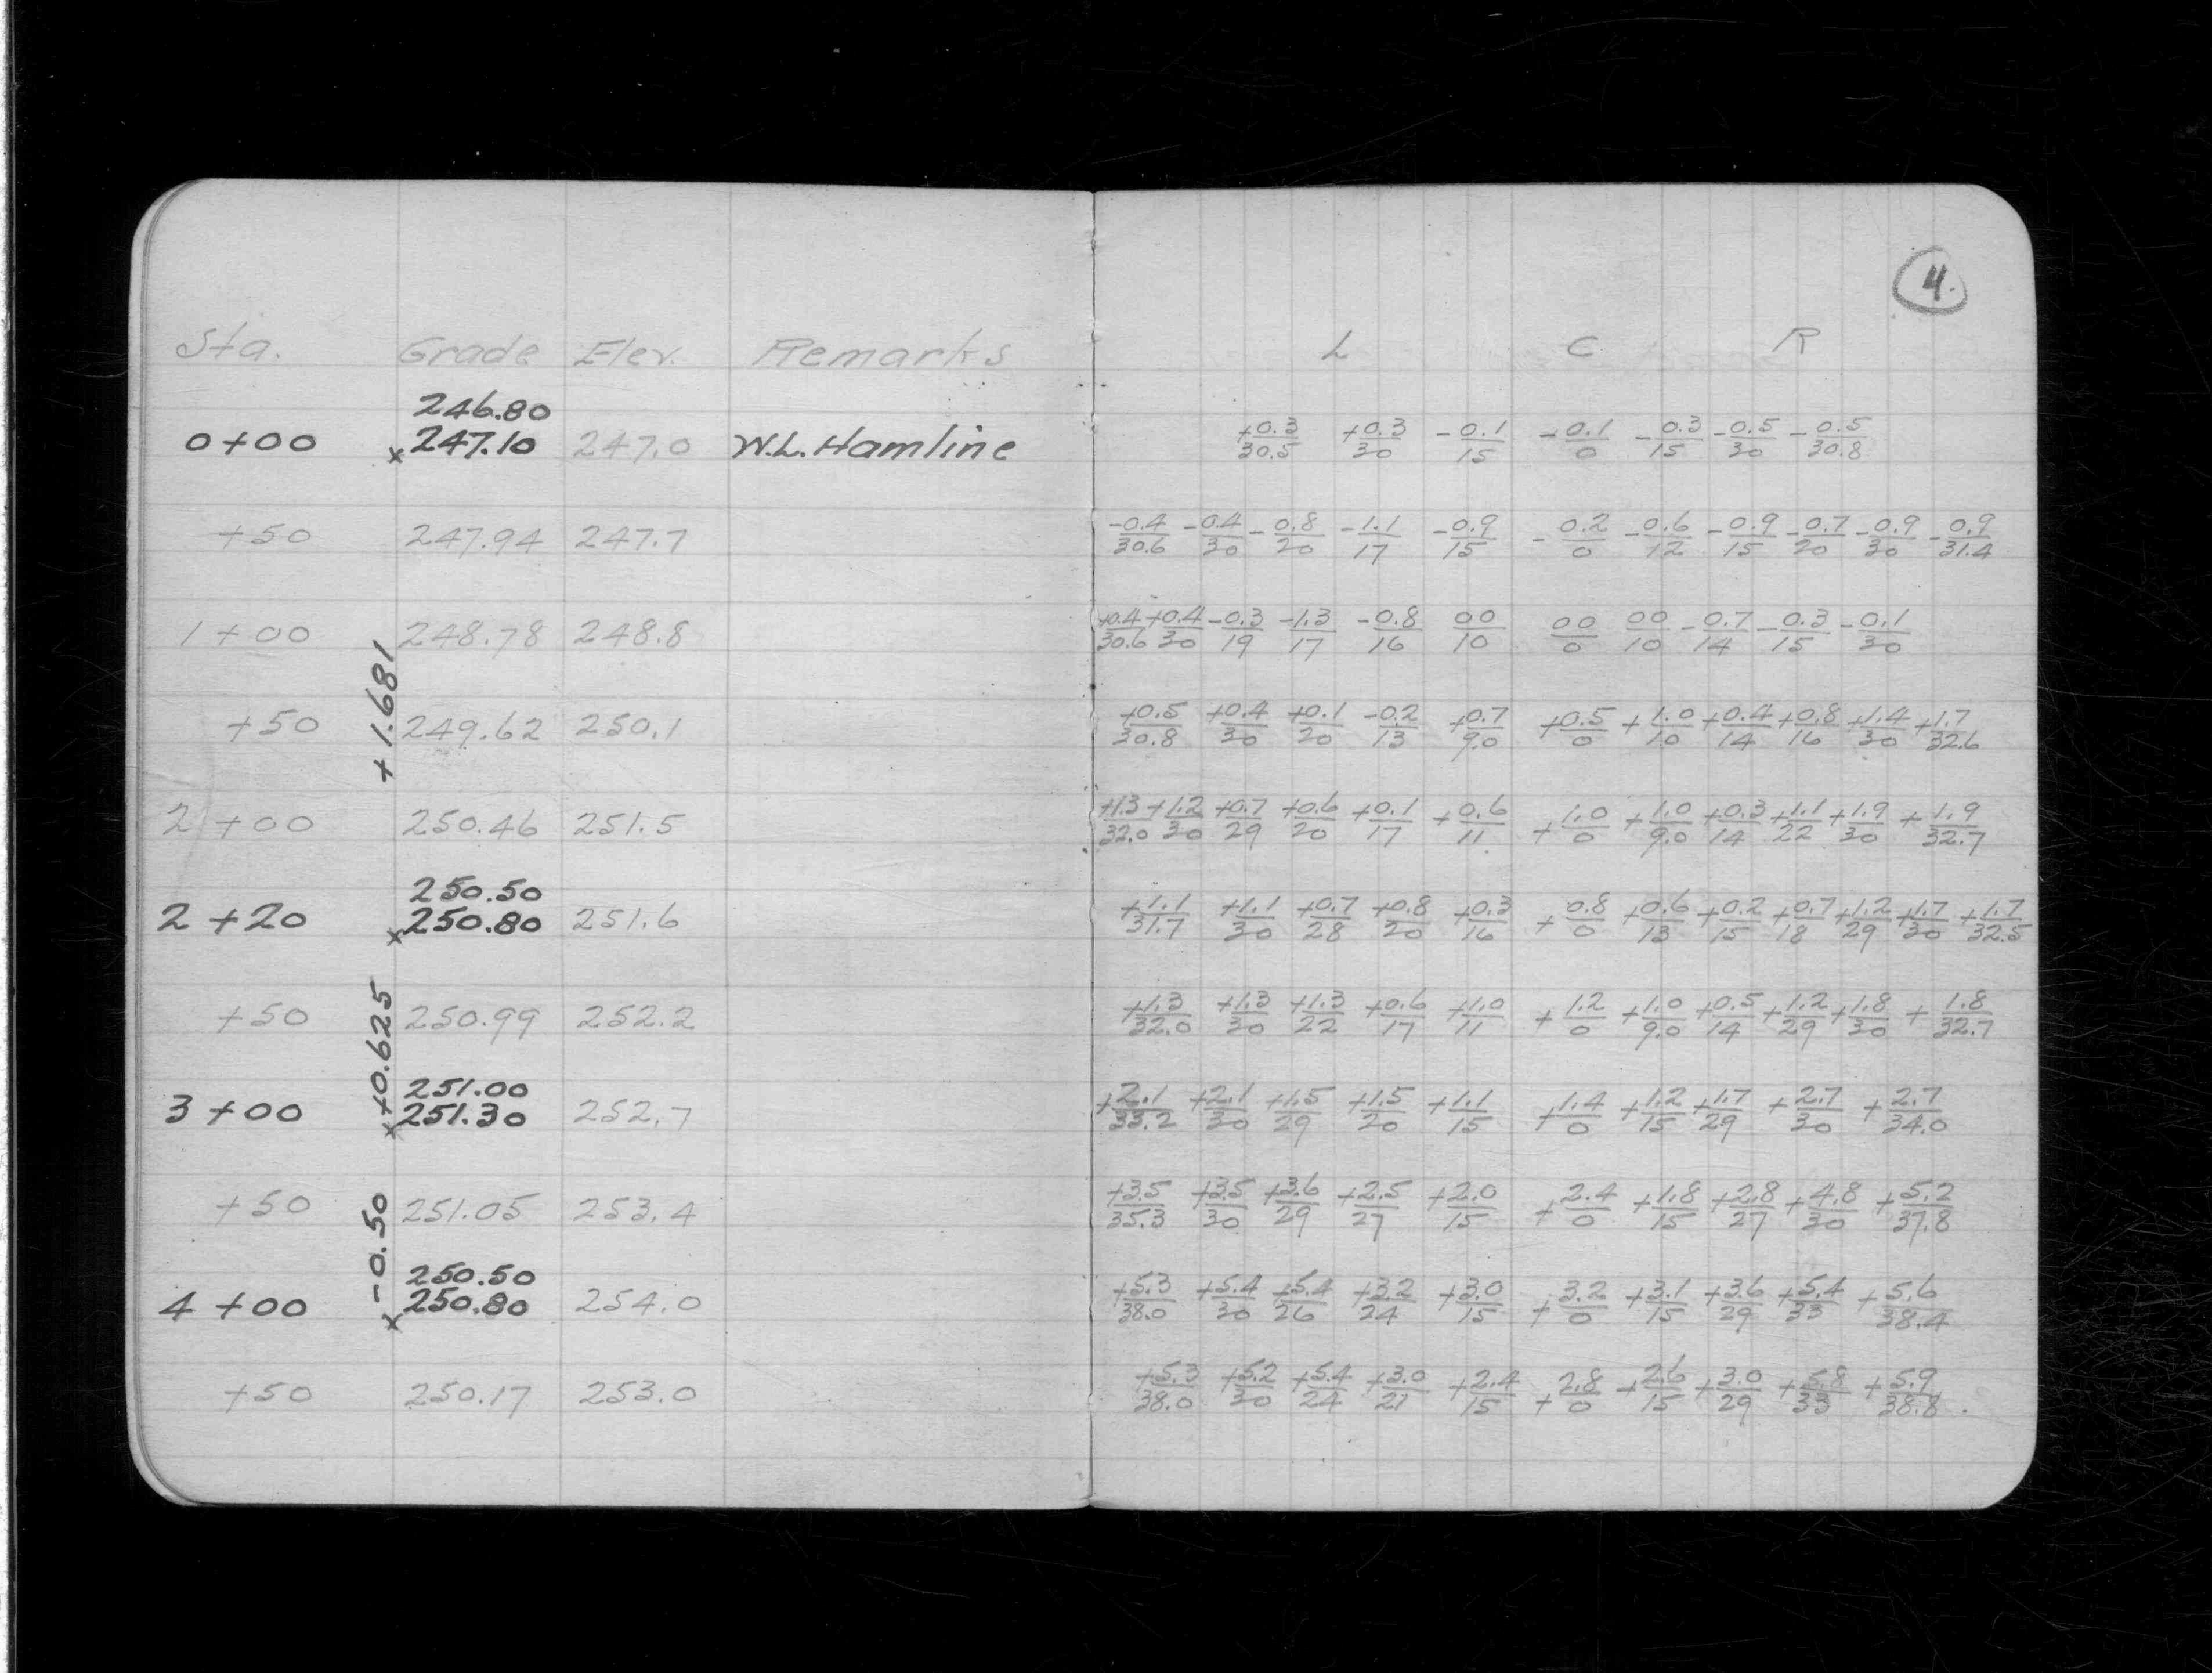 4.
Sta. Grade Elev. Remarks L C R
246.80
0+00 x247.10 247.0 W.L. Hamline +0.3/30.5 +0.3/30 -0.1/15 -0.1/0 -0.3/15 -0.5/30 -0.5/30.8
+50 247.94 247.7 -0.4/30.6 -0.4/30 -0.8/20 -1.1/17 -0.9/15 -0.2/0 -0.6/12 -0.9/15 -0.7/20 -0.9/30 -0.9/31.4
1+00 248.78 248.8 +0.4/30.6 +0.4/30 -0.3/19 -1.3/17 -0.8/16 00/10 00/0 00/10 -0.7/14 -0.3/15 -0.1/30
+1.681
+50 249.62 250.1 +0.5/30.8 +0.4/30 +0.1/20 -0.2/13 +0.7/9.0 +0.5/0 +1.0/10 +0.4/14 +0.8/16 +1.4/30 +1.7/32.6
2+00 250.46 251.5 +1.3/32.0 +1.2/30 +0.7/29 +0.6/20 +0.1/17 +0.6/11 +1.0/0 +1.0/9.0 +0.3/14 +1.1/22 +1.9/30 +1.9/32.7
250.50
2+20 x250.80 251.6 +1.1/31.7 +1.1/30 +0.7/28 +0.8/20 +0.3/16 +0.8/0 +0.6/13 +0.2/15 +0.7/18 +1.2/29 +1.7/30 +1.7/32.5
+50 250.99 252.2 +1.3/32.0 +1.3/30 +1.3/22 +0.6/17 +1.0/11 +1.2/0 +1.0/9.0 +0.5/14 +1.2/29 +1.8/30 +1.8/32.7
+0.625
251.00
3+00 x251.30 252.7 +2.1/33.2 +2.1/30 +1.5/29 +1.5/20 +1.1/15 +1.4/0 +1.2/15 +1.7/29 +2.7/30 +2.7/34.0
+50 251.05 253.4 +3.5/35.3 +3.5/30 +3.6/29 +2.5/27 +2.0/15 +2.4/0 +1.8/15 +2.8/27 +4.8/30 +5.2/37.8
-0.50
250.50
4+00 x250.80 254.0 +5.3/38.0 +5.4/30 +5.4/26 +3.2/24 +3.0/15 +3.2/0 +3.1/15 +3.6/29 +5.4/33 +5.6/38.4
+50 250.17 253.0 +5.3/38.0 +5.2/30 +5.4/24 +3.0/21 +2.4/15 +2.8/0 +2.6/15 +3.0/29 +5.8/33 +5.9/38.8